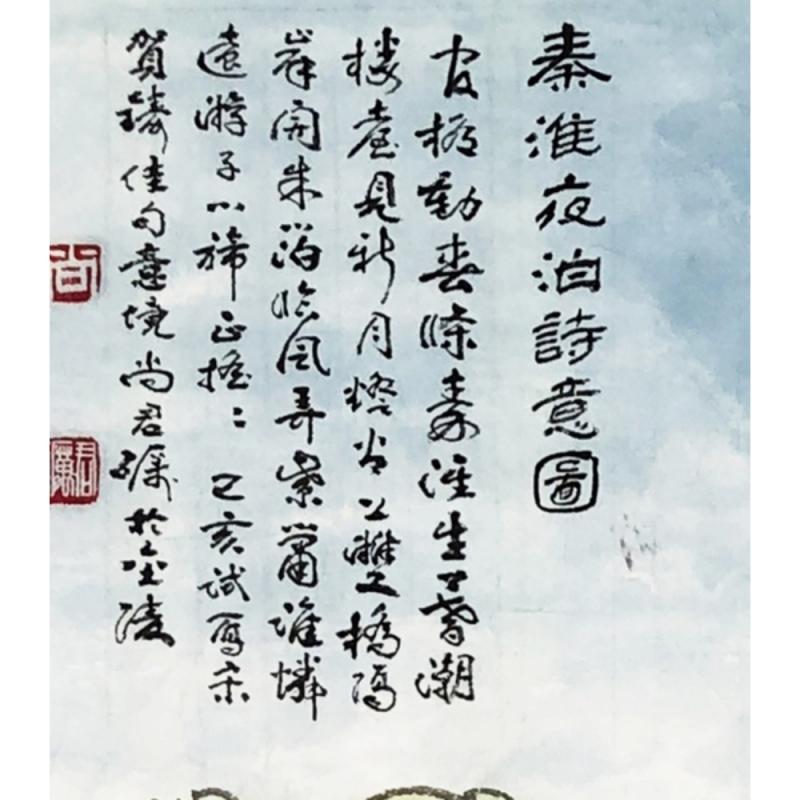 秦淮夜泊詩意圖
官柳動春條秦淮生暮潮
楼臺見新月燈火上雙橋隔
岸開朱箔臨風弄紫簫誰憐
遠游子心旆正摇〻 己亥試寫宋
賀鑄佳句意境尚君礪於金陵
尚
君厲